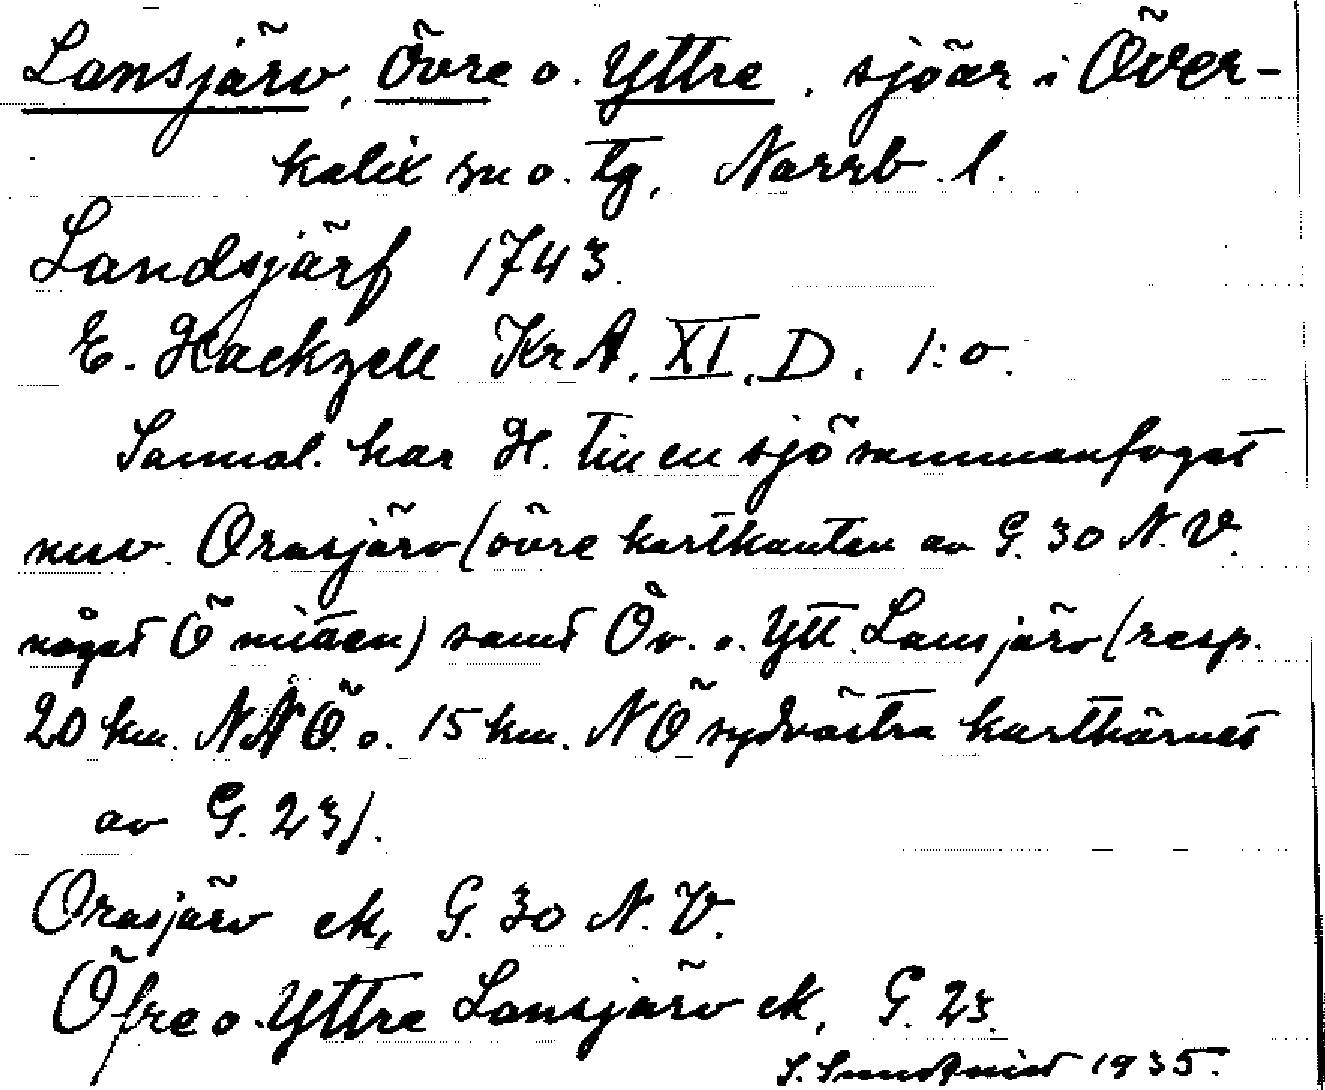 Lansjärv, Övre o. Yttre, sjöar i Över-
kalix sn o. tg, Norrb. l.
Landsjärf 1743.
E. Hackzell KrA. XI. D. 1:o.
Sannol. har H. till en sjö sammanfogat
nuv. Orasjärv (övre kartkanten av G. 30 N.V.
något Ö mitten) samt Öv. o. Ytt. Lansjärv (resp.
20 km. NNÖ. o. 15 km. NÖ sydvästra karthörnet
av G. 23).
Orasjärv ek, G. 30 N.V.
Öfre o. Yttre Lansjärv ek, G. 23.
1935.